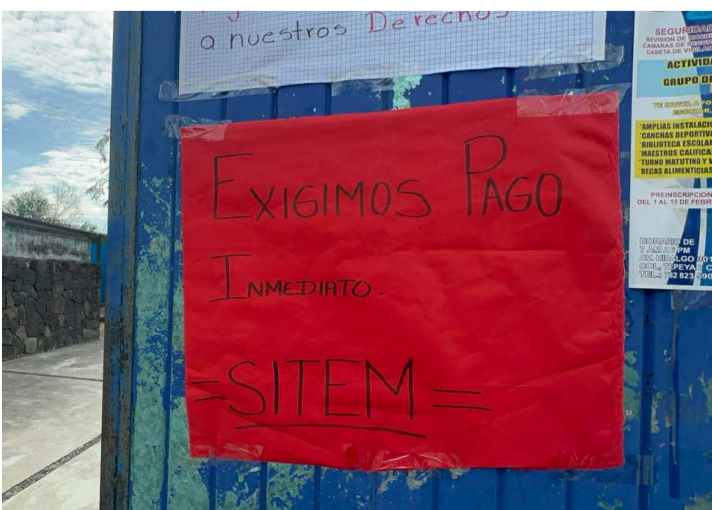 a nuestros Derechos
EXIGIMOS PAGO
INMEDIATO.
=SITEM=
SEGURIDAD
CASETA DE VIGILAN
ACTIVIDA
GRUPO DE
TE INVITA A FO
ESCOLAR.
*AMPLIAS INSTALACIO
*CANCHAS DEPORTIVA
*BIBLIOTECA ESCOLAR
*MAESTROS CALIFICA
*TURNO MATUTINO Y V
*BECAS ALIMENTICIAS
PREINSCRIPCION
DEL 1 AL 15 DE FEBR
HORARIO DE
7 AM A 8 PM
AV. HIDALGO
COL. TEPEYAC